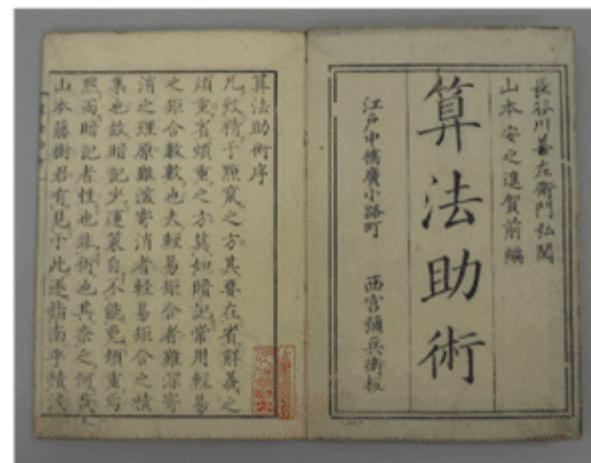 長谷川善左衛門弘閲
山本安之進賀前編
算法助術
江戸中橋廣小路町　西宮彌兵衛板
算法助術序
凡欲精于點竄之方其要在省解義之
煩重省煩重之方莫如暗記常用輕易
之矩合數數也夫輕易矩合者雖深寄
消之理原雖淺寄消者輕易矩合之積
集也故暗記少運筭自不能免煩重焉
然而暗記者性也非術也其奈之何哉
山本藤樹君有見于此遂指南乎積淺